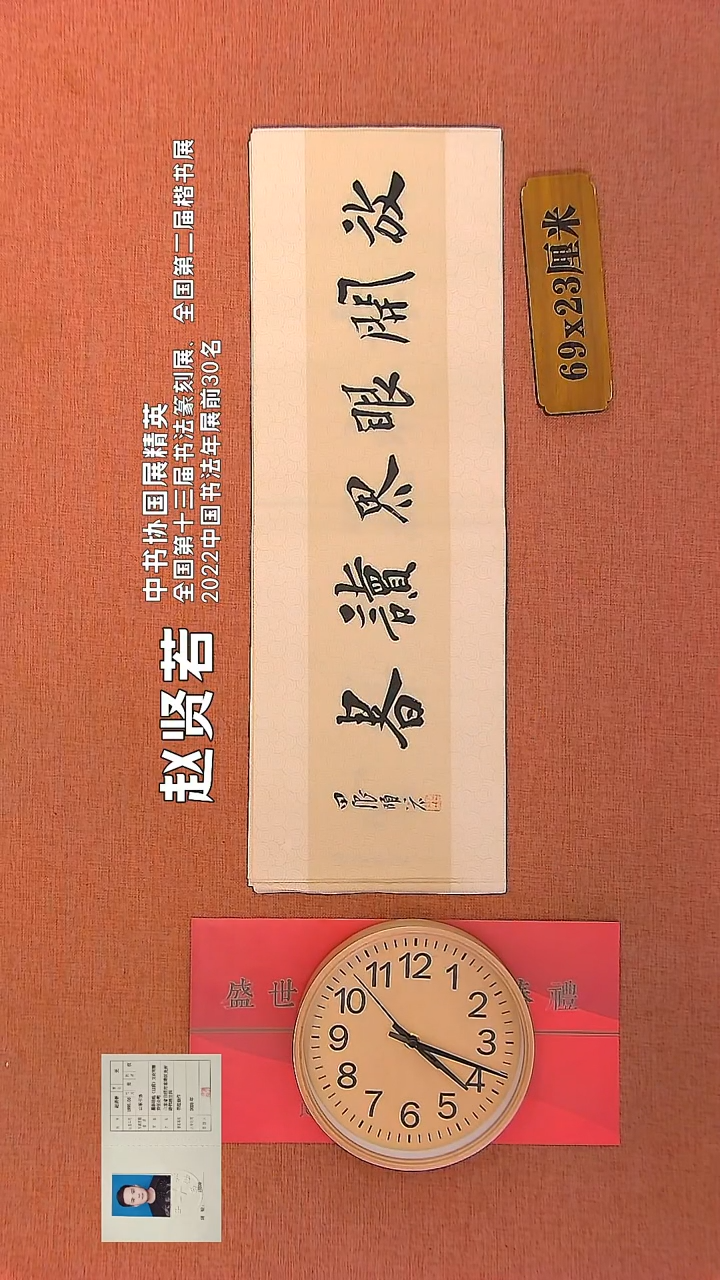 赵贤若
中书协国展精英
全国第十三届书法篆刻展、全国第二届楷书展
2022中国书法年展前30名
放開眼界讀書
69x23厘米
盛世 禮
12
1
2
3
4
5
6
7
8
9
10
11